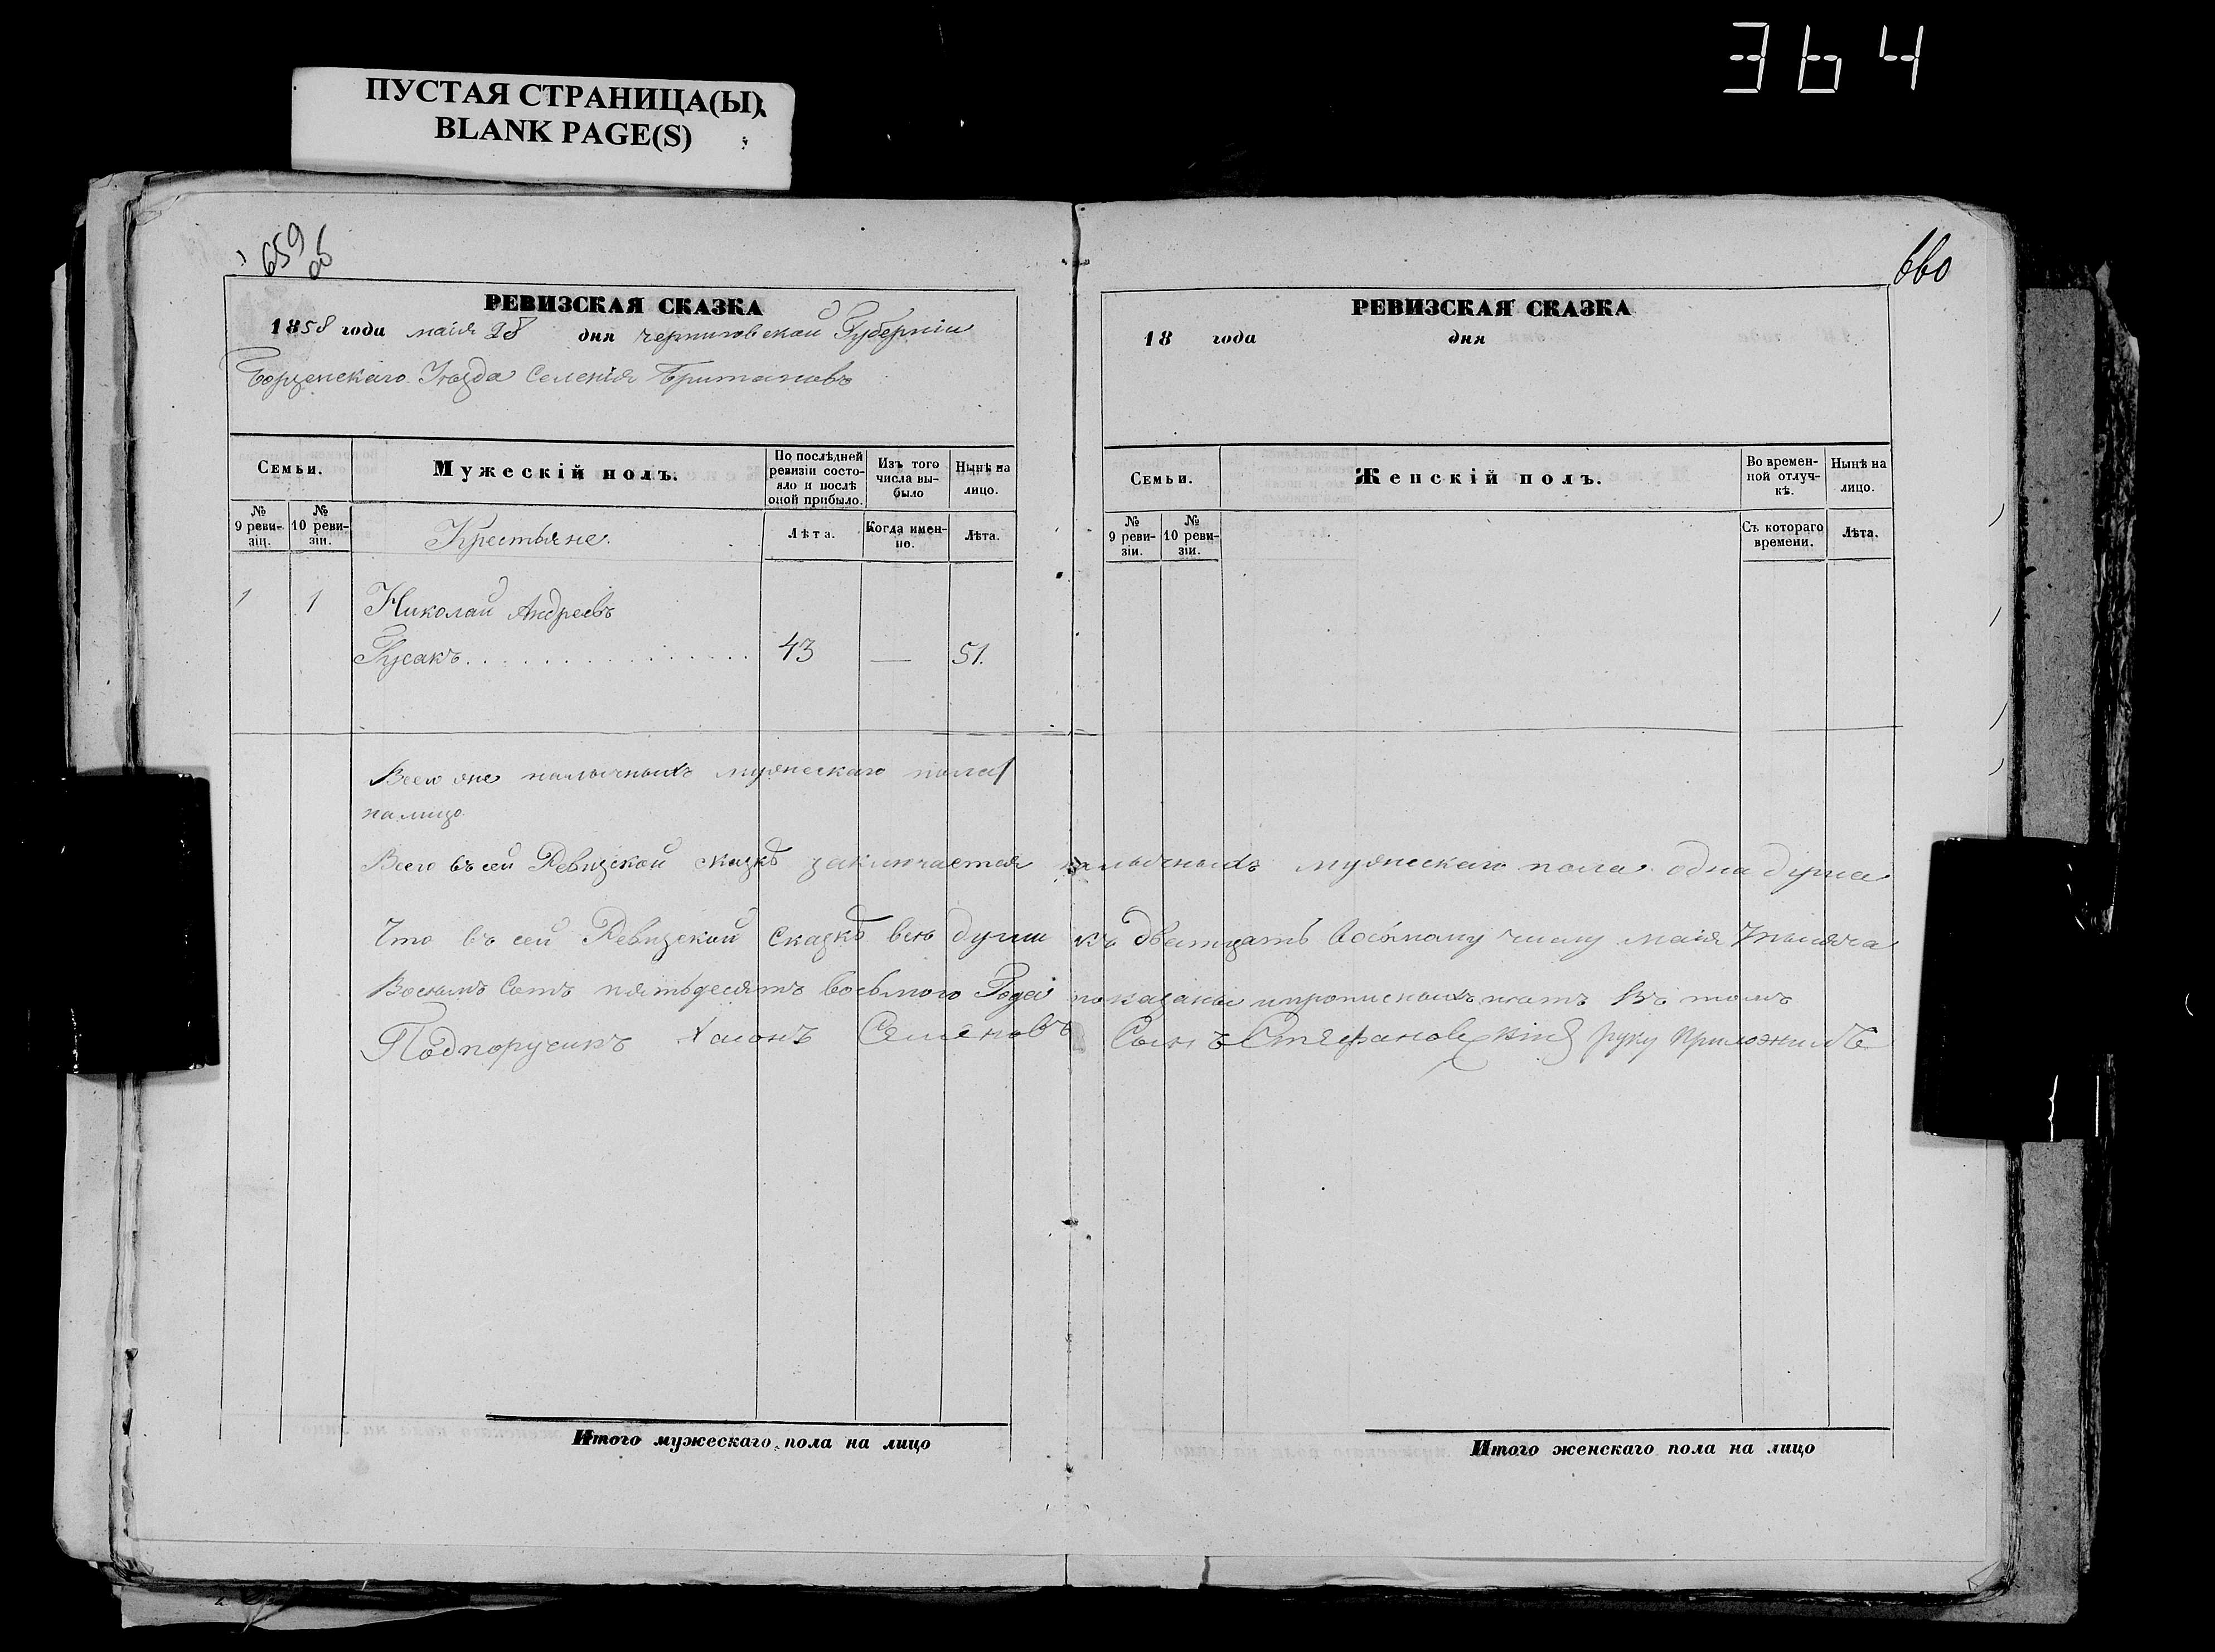 364
ПУСТАЯ СТРАНИЦА(Ы)
BLANK PAGE(S)
659 об
РЕВИЗСКАЯ СКАЗКА
1858 года маія 28 дня черниговской Губерніи
Борзенскаго Уѣзда Селенія Британовъ
Семьи.
Мужескій полъ.
По послѣдней ревизіи состояло и послѣ оной прибыло.
Изъ того числа выбыло
Нынѣ на лицо.
№ 9 ревизіи.
№ 10 ревизіи.
Крестьяне.
Лѣта.
Когда именно.
Лѣта.
1 1 Николай Андреевъ
Гусакъ 43 — 51.
Всего наличныхъ мужескаго пола 1
налицо
Всего въ сей Ревизской сказкѣ заключается наличныхъ мужескаго пола одна душа
Что въ сей Ревизской Сказкѣ всѣ души къ дватцать восьмому числу маія
Восемъ Сотъ пятьдесятъ восьмого Года показаны и прописныхъ нѣтъ Въ томъ
Подпоручикъ Семеновъ Сынъ Стефановскій руку приложилъ
Итого мужескаго пола на лицо
660
РЕВИЗСКАЯ СКАЗКА
18 года дня
Семьи.
Женскій полъ.
Во временной отлучкѣ.
Нынѣ на лицо.
№ 9 ревизіи.
№ 10 ревизіи.
Съ котораго времени.
Лѣта.
Итого женскаго пола на лицо